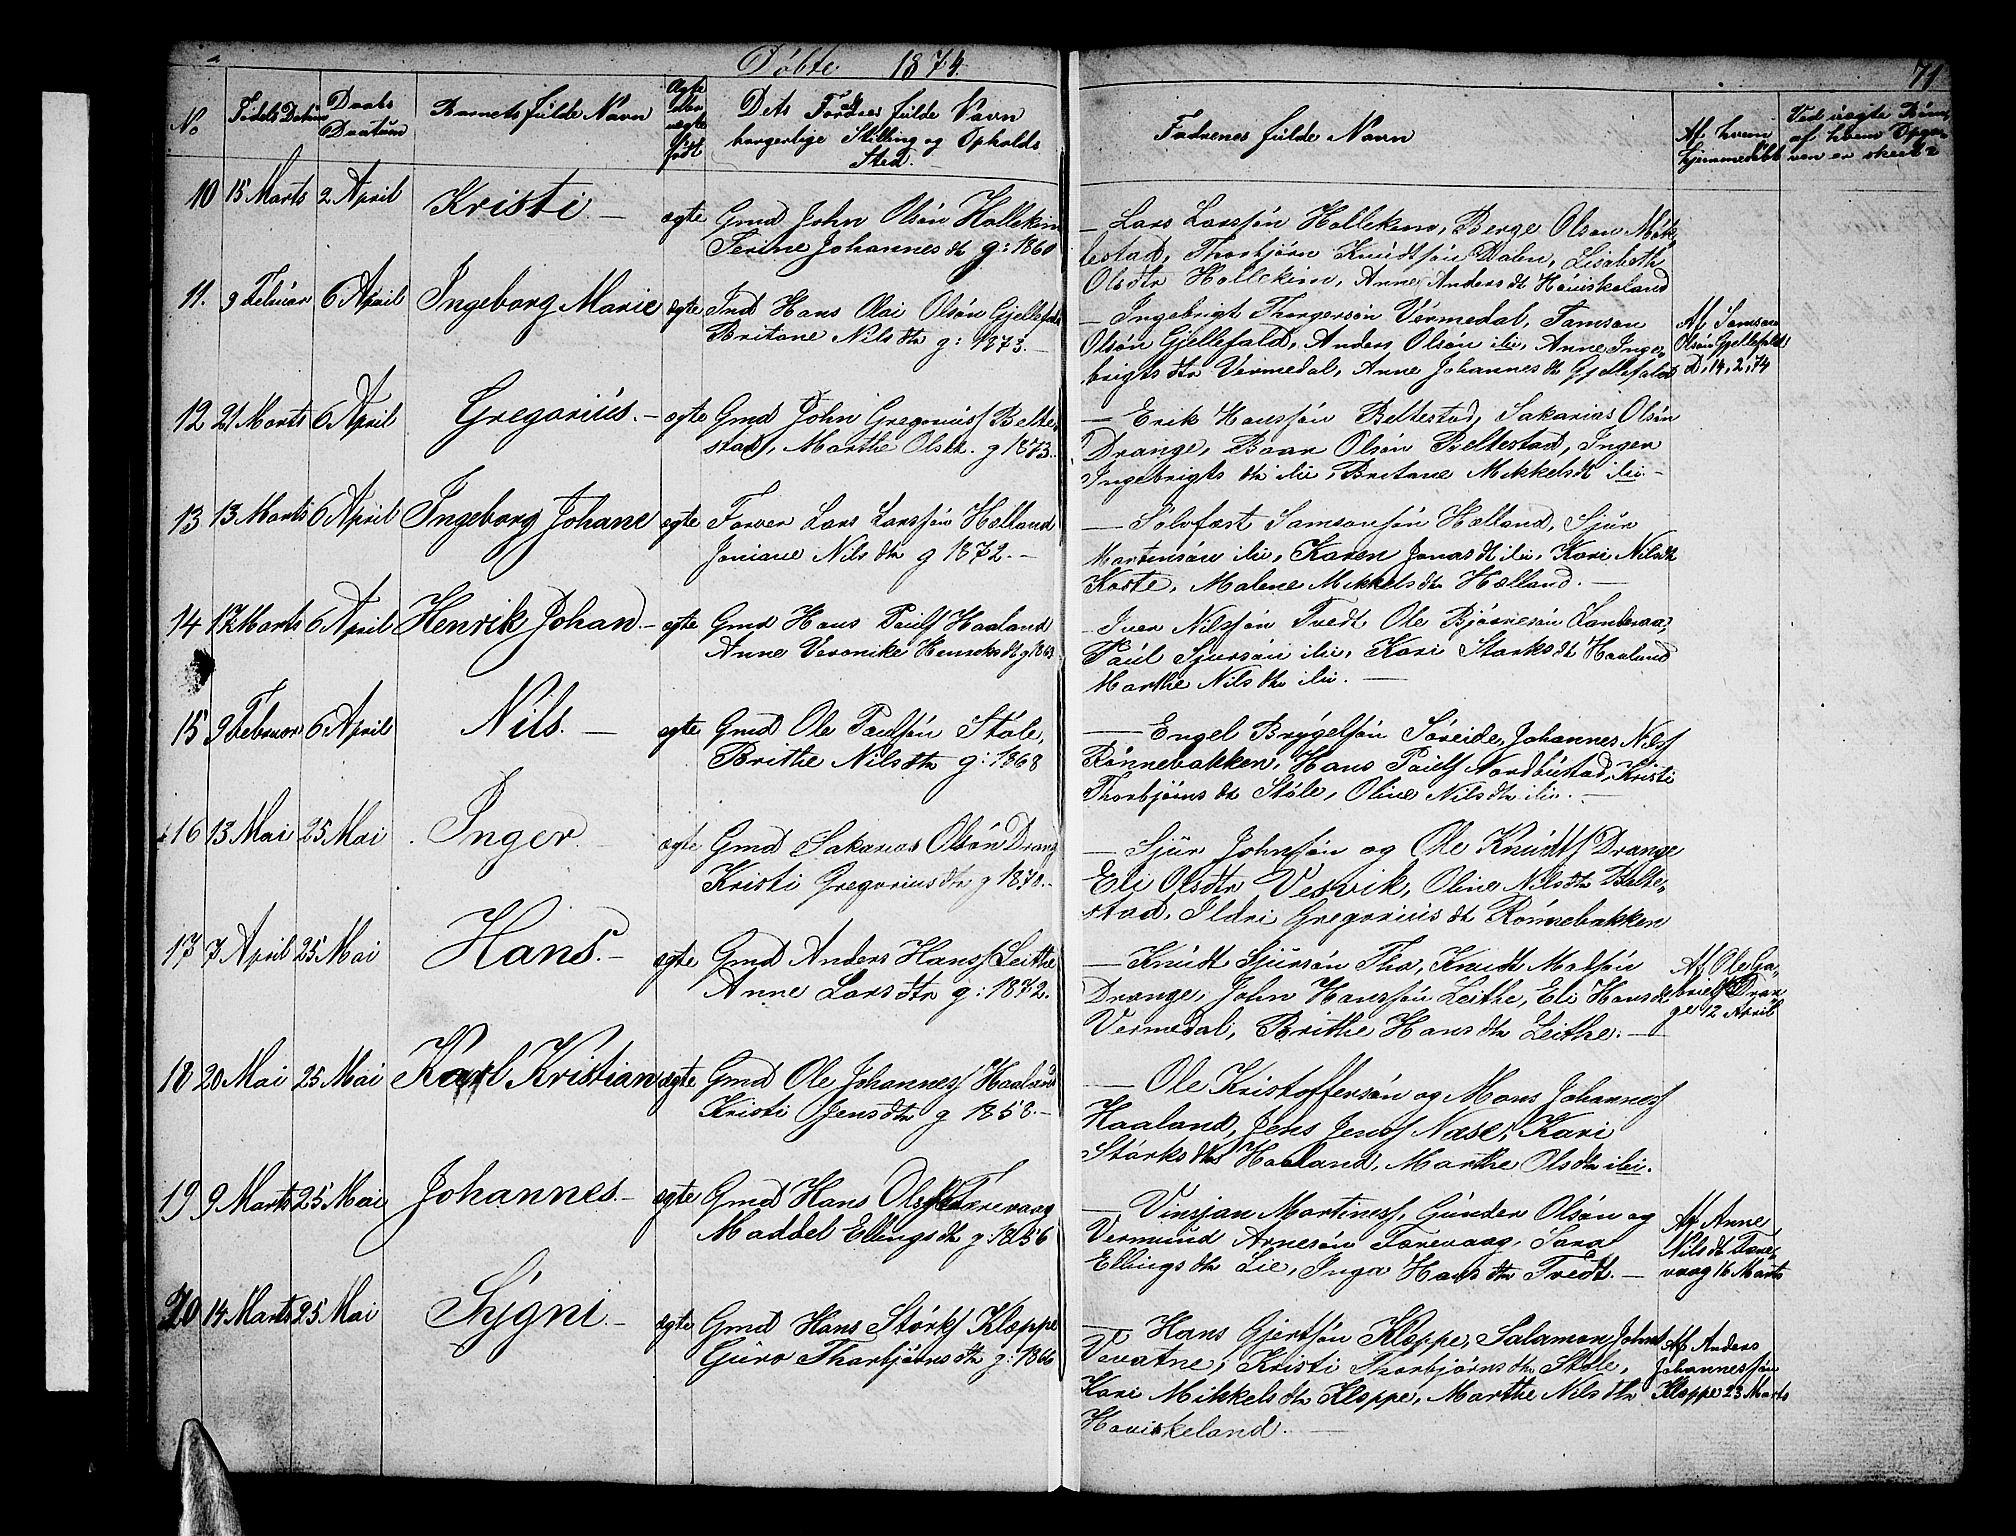 Døbte 1874.
71
No
Fødels Datum
Daabs Daatum
Barnets fulde Navn
Ægte eller uægte født
Dets Forældres fulde Navn
borgerlige Stilling og Opholds
Sted.
Faderenes fulde Navn
Af hvem hjemmedøbt
Ved uægte Børn, af hvem Opga- ven er skeet?
10 15 Marts 2 April Kristi. — ægte Gmd John Olsøn Hollekim
Serine Johannes dt g: 1860
— Lars Larssøn Hollekim, Berge Olsøn Møk-
lestad, Thorbjørn Knudtsøn Dalen, Lisabeth
Olsdtr Hollekim, Anne Anders dt Høviskeland
11. 9 Februar 6 April Ingeborg Marie ægte Ind Hans Olai Olsøn Gjellefald
Britane Nils dtr g: 1873. —
— Ingebrigt Thorgersøn Vermedal, Samson
Olsøn Gjellefald, Anders Olsøn ibi, Anne Inge-
brigts dtr Vermedal, Anne Johannes dt Gjellefald
Af Samson
Olsøn Gjellefald
D, 14, 2, 74
12 21 Marts 6 April Gregorius. — ægte Gmd John Gregoriuss Belte-
stad, Marthe Olsdt. g 1873.
— Erik Hanssøn Beltestad, Sakarias Olsøn
Drange, Baar Olsøn Beltestad, Inger
Ingebrigts dtr ibi, Britane Mikkels dt ibi —
13 13 Marts 6 April Ingeborg Johane ægte Farver Lars Larssøn Hælland
Joniane Nils dtr g 1872. —
— Solvfæst Samsonsøn Hælland, Sjur
Martensøn ibi, Karen Jonas dt ibi, Kari Nilsdt
Kaste, Malene Mikkels dtr Hælland. —
14 17 Marts 6 April Henrik Johan. — ægte Gmd Hans Pouls Haaland
Anne Veronike Henriks dt g 1863
— Iver Nilssøn Tvedt, Ole Bjørnesøn Landeraa,
Paul Sjursøn ibi, Kari Størks dt Haaland
Marthe Nils dtr ibi. —
15 9 Februar 6 April Nils. — ægte Gmd Ole Poulsøn Støle,
Brithe Nils dtr g: 1868
— Engel Brygelsøn Søreide, Johannes Nilss
Rønnebakken, Hans Pouls Nordbustad, Kristi
Thorbjørns dt Støle, Oline Nils dtr ibi. —
16 13 Mai 25 Mai Inger. ægte Gmd Sakarias Olsøn Drang
Kristi Gregorius dtr g 1870. —
— Sjur Johnsøn og Ole Knudts Drange
Eli Olsdtr Vesvik, Oline Nils dtr Belte-
stad, Ildri Gregorius dt Rønnebakken
17 7 April 25 Mai Hans. — ægte Gmd Anders Hanss Leithe
Anne Lars dtr g: 1872.
— Knudt Sjursøn Thu, Knudt Madsøn
Drange, John Hanssøn Leithe, Eli Hans dt
Vermedal, Brithe Hans dtr Leithe. —
Af Ole Ga-
briels Dran-
ge 12 April
18 20 Mai 25 Mai Karl Kristian ægte Gmd Ole Johanness Haaland
Kristi Jens dtr g 1858. —
— Ole Kristoffersøn og Mons Johanness
Haaland, Jens Jenss Næse, Kari
Størks dtr Haaland, Marthe Ols dtr ibi.
19 9 Marts 25 Mai Johannes. — ægte Gmd Hans Ols Færevaag
Maddel Ellings dtr g: 1856
— Vinsjan Martiness, Gunder Olsøn og
Vermund Arnesøn Færevaag, Sara
Ellings dtr Lie, Inga Hans dtr Tvedt. —
Af Anne
Nils dt Fære-
vaag 16 Marts
20 14 Marts 25 Mai Sygni. — ægte Gmd Hans Størks Kleppe
Guro Thorbjørns dtr g: 1866
— Hans Gjertsøn Kleppe, Salamon Johns
Vevatne, Kristi Thorbjørns dtr Støle,
Kari Mikkels dtr Kleppe, Marthe Nils dtr
Høviskeland. —
Af Anders
Johannessøn
Kleppe 23 Marts